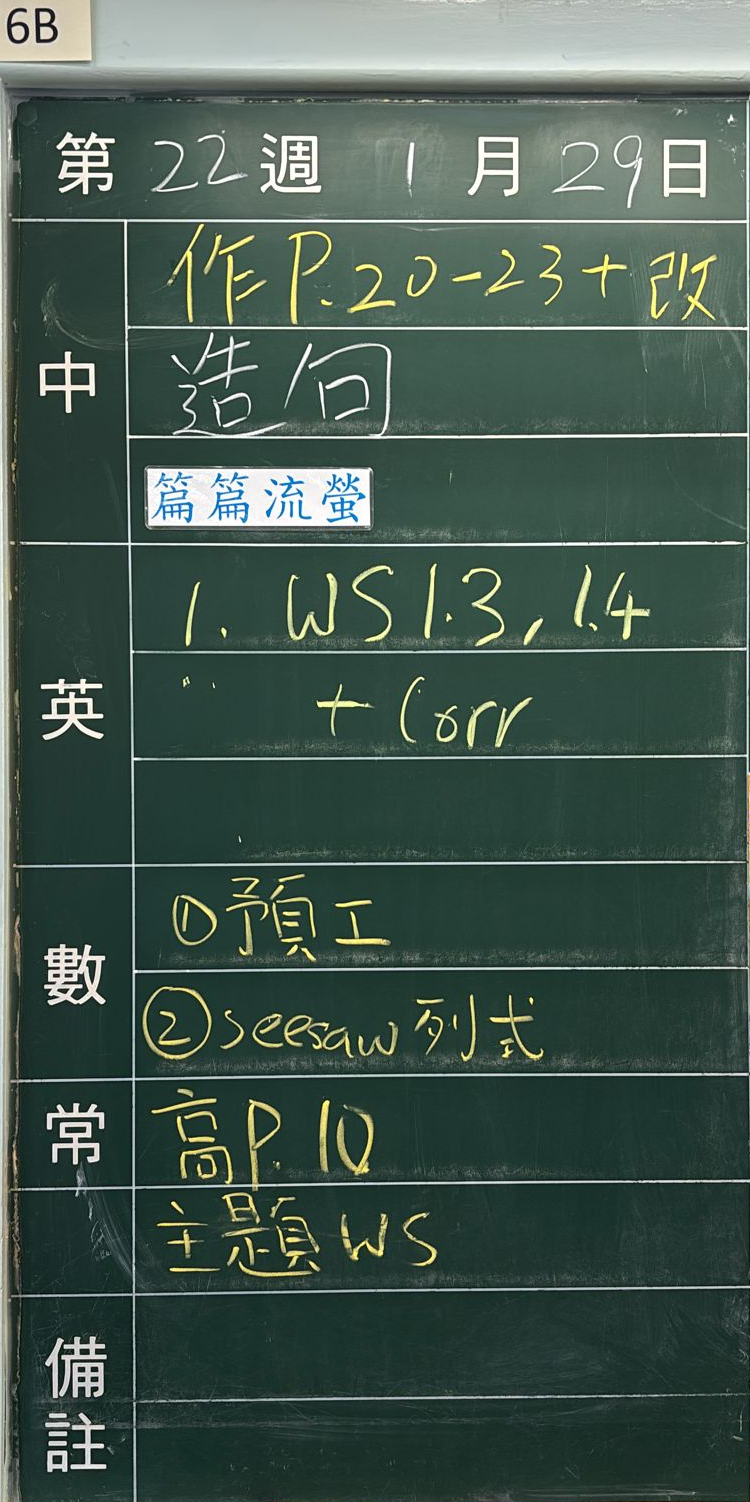 6B
第 22 週 1 月 29 日
中
作 P.20-23 + 改
造句
篇篇流螢
英
1. WS 1.3, 1.4
+ Corr
數
①預工
②seesaw 列式
常
高P.10
主題 WS
備註